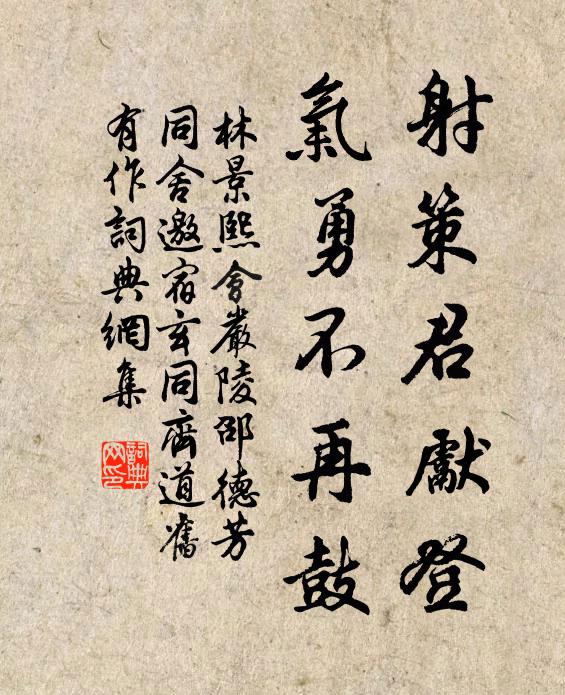 射策君獻登
氣勇不再鼓
林景熙會嚴陵邵德芳
同舍邀宿玄同齊道舊
有作詞典網集
詞典網印